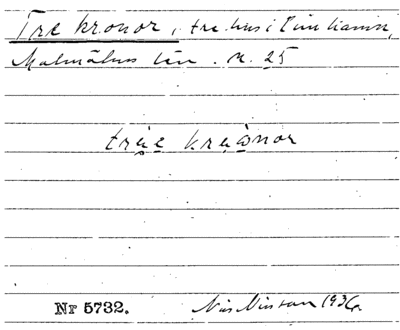 Tre kronor, tre hus i Limhamn,
Malmöhus län. n. 25
träe kräonor
Nr 5732. Nils Nilsson 1936.